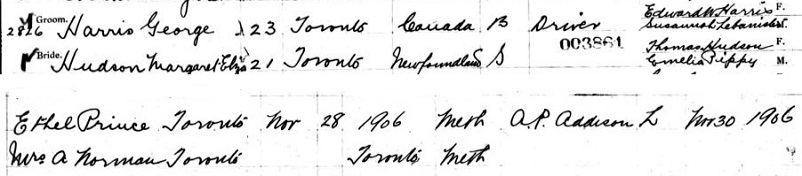 Groom. Harris George 23 Toronto Canada B Driver Edward W Harris F.
Susannah M.
003861
Bride. Hudson Margaret Eliza 21 Toronto Newfoundland S Thomas Hudson F.
Emelia Pippy M.
Ethel Prince Toronto Nov 28 1906 Meth A.P. Addison L Nov 30 1906
Mrs A Norman Toronto Toronto Meth